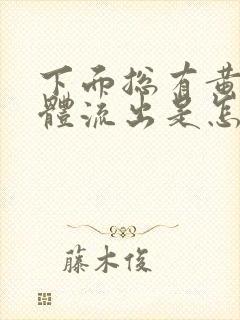 下面总有黄
體流出是怎
藤木俊